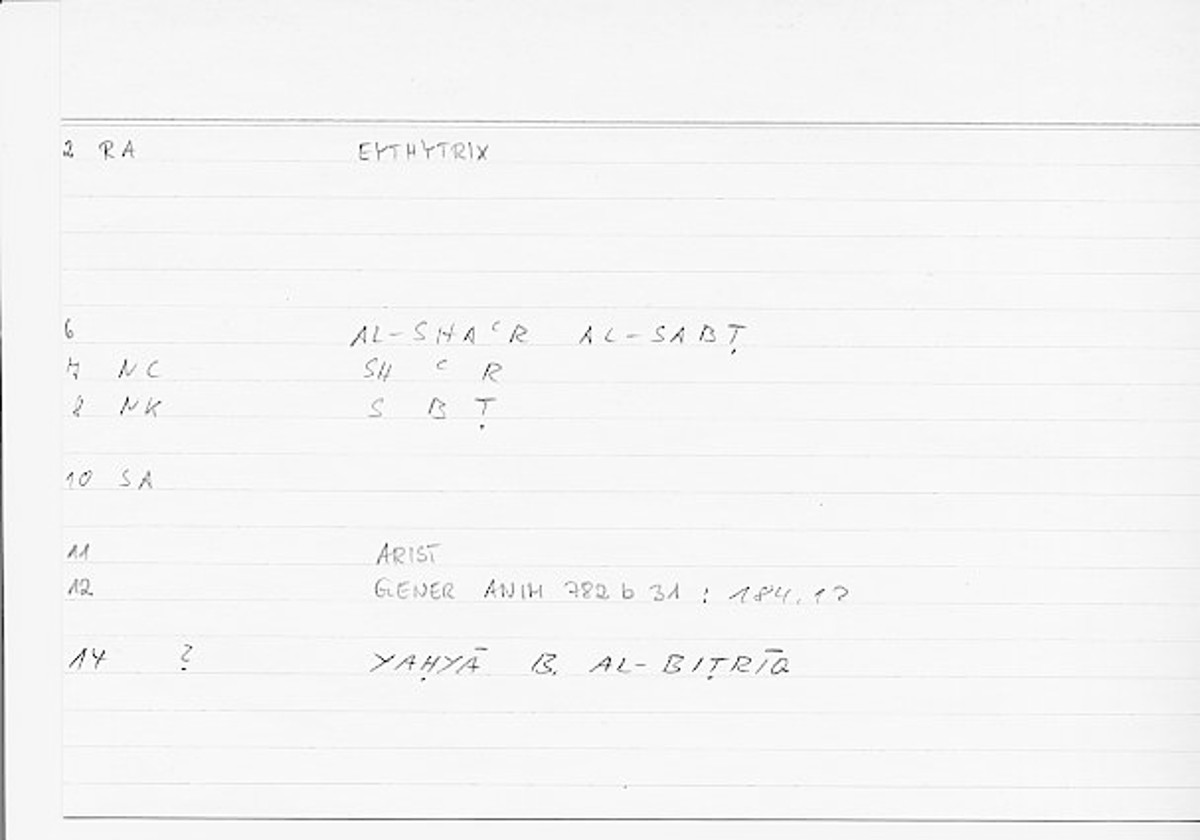 2 RA EYTHYTRIX
6 AL-SHAʿR AL-SABṬ
7 NC SH ʿ R
8 NK S B Ṭ
10 SA
11 ARIST
12 GENER ANIM 782 b 31 : 184.17
14 ? YAḤYĀ B. AL-BIṬRĪQ